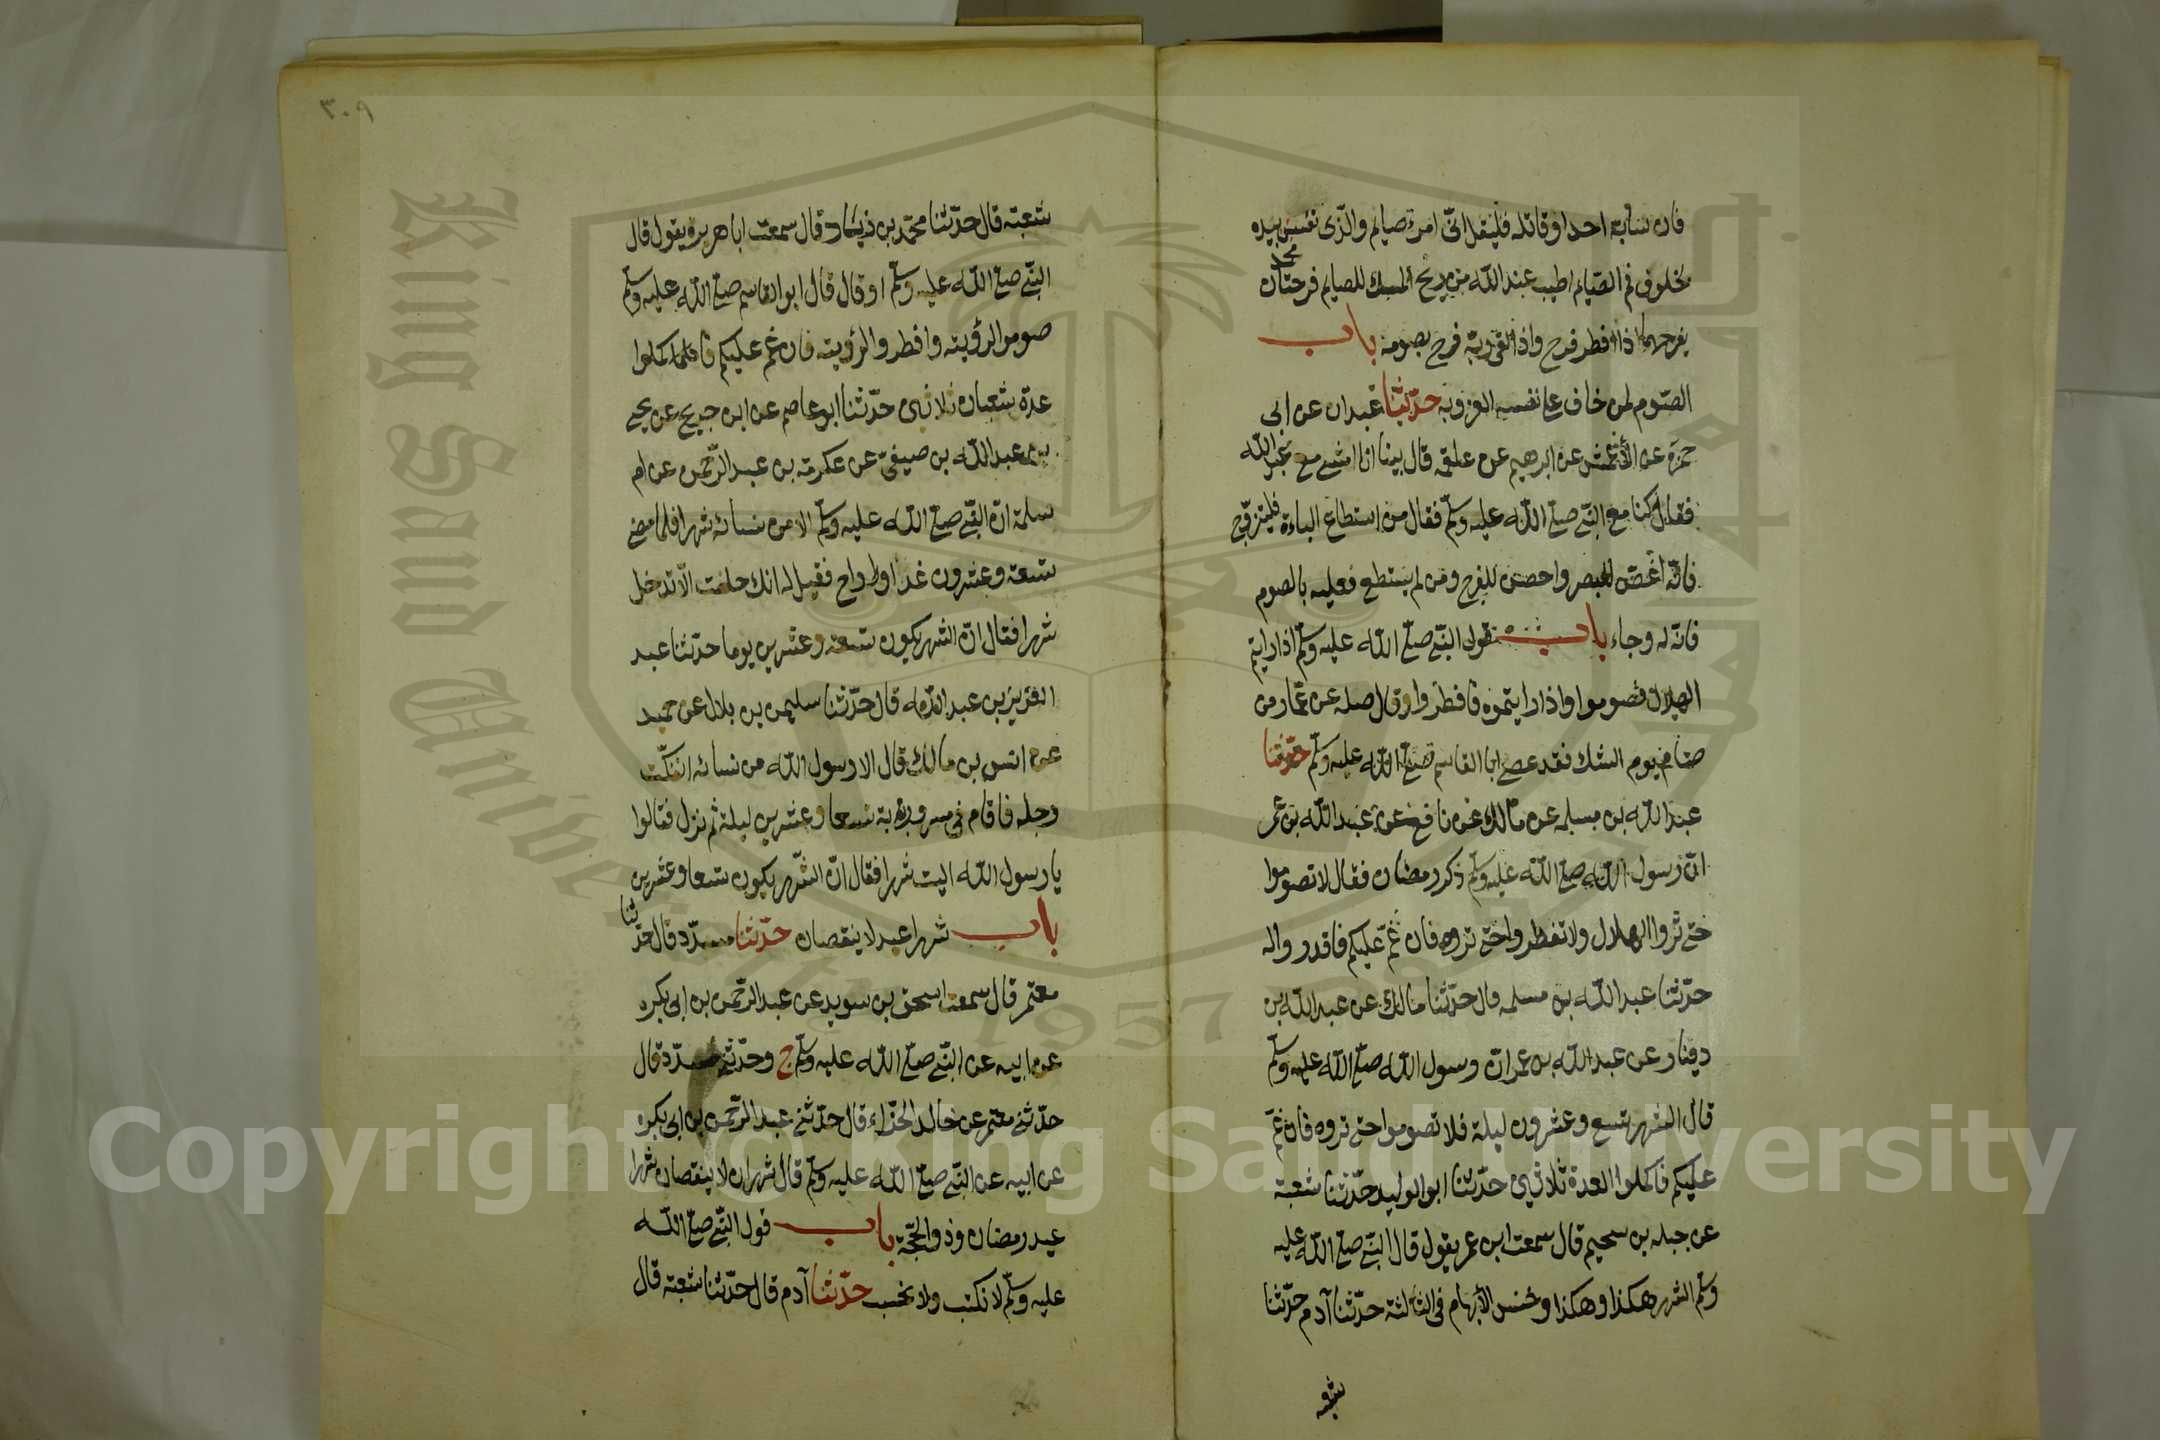 فان سابه احد او قاتله فليقل انى امرء صايم والذى نفس محمد بيده
لخلوف فم الصيام اطيب عند الله من ريح المسك للصايم فرحتان
يفرحهما اذا افطر فرح واذا لقى ربه فرح بصومه باب
الصوم لمن خاف على نفسه العزوبه حدثنا عبدان عن ابى
حمزة عن الأعمش عن ابرهيم عن علقمه قال بينا انا امشى مع عبد الله
فقال كنا مع النبى صلى الله عليه وسلم فقال من استطاع الباءة فليتزوج
فانه اغض للبصر واحصن للفرج ومن لم يستطع فعليه بالصوم
فانه له وجاء باب قول النبى صلى الله عليه وسلم اذا رايتم
الهلال فصوموا واذا رايتموه فافطروا وقال صله عن عمار من
صام يوم الشك فقد عصى ابا القاسم صلى الله عليه وسلم حدثنا
عبد الله بن مسلمه عن مالك عن نافع عن عبد الله بن عمر
ان رسول الله صلى الله عليه وسلم ذكر رمضان فقال لا تصوموا
حتى تروا الهلال ولا تفطروا حتى تروه فان غم عليكم فاقدروا له
حدثنا عبد الله بن مسلمه قال حدثنا مالك عن عبد الله بن
دينار عن عبد الله بن عمر ان رسول الله صلى الله عليه وسلم
قال الشهر تسع وعشرون ليلة فلا تصوموا حتى تروه فان غم
عليكم فاكملوا العدة ثلاثين حدثنا ابو الوليد حدثنا شعبة
عن جبله بن سحيم قال سمعت ابن عمر يقول قال النبى صلى الله عليه
وسلم الشهر هكذا وهكذا وخنس الأبهام فى الثالثة حدثنا آدم حدثنا
شعبه
٣٠٩
شعبة قال حدثنا محمد بن زياد قال سمعت ابا هريره يقول قال
النبى صلى الله عليه وسلم او قال قال ابو القاسم صلى الله عليه وسلم
صوموا لرؤيته وافطروا لرؤيته فان غم عليكم فاكملوا
عدة شعبان ثلاثين حدثنا ابو عاصم عن ابن جريج عن يحيى
بن عبد الله بن صيفى عن عكرمة بن عبد الرحمن عن ام
سلمة ان النبى صلى الله عليه وسلم الا من نسائه شهرا فلما مضى
تسعة وعشرون غدا او راح فقيل له انك حلفت الا تدخل
شهرا فقال ان الشهر يكون تسعة وعشرين يوما حدثنا عبد
العزيز بن عبد الله قال حدثنا سليمن بن بلال عن حميد
عن انس بن مالك قال الا رسول الله من نسائه انفكت
رجله فاقام فى مشربة تسعا وعشرين ليلة ثم نزل فقالوا
يا رسول الله اليت شهرا فقال ان الشهر يكون تسعا وعشرين
باب شهرا عيد لا ينقصان حدثنا مسدد قال حدثنا
معتمر قال سمعت اسحق بن سويد عن عبد الرحمن بن ابى بكره
عن ابيه عن النبى صلى الله عليه وسلم ح وحدثنى مسدد قال
حدثنى معتمر عن خالد الحذاء قال حدثنى عبد الرحمن بن ابى بكره
عن ابيه عن النبى صلى الله عليه وسلم قال شهران لا ينقصان شهرا
عيد رمضان وذو الحجة باب قول النبى صلى الله
عليه وسلم لا نكتب ولا نحسب حدثنا آدم قال حدثنا شعبة قال
King Saud University
1957
Copyright © King Saud University